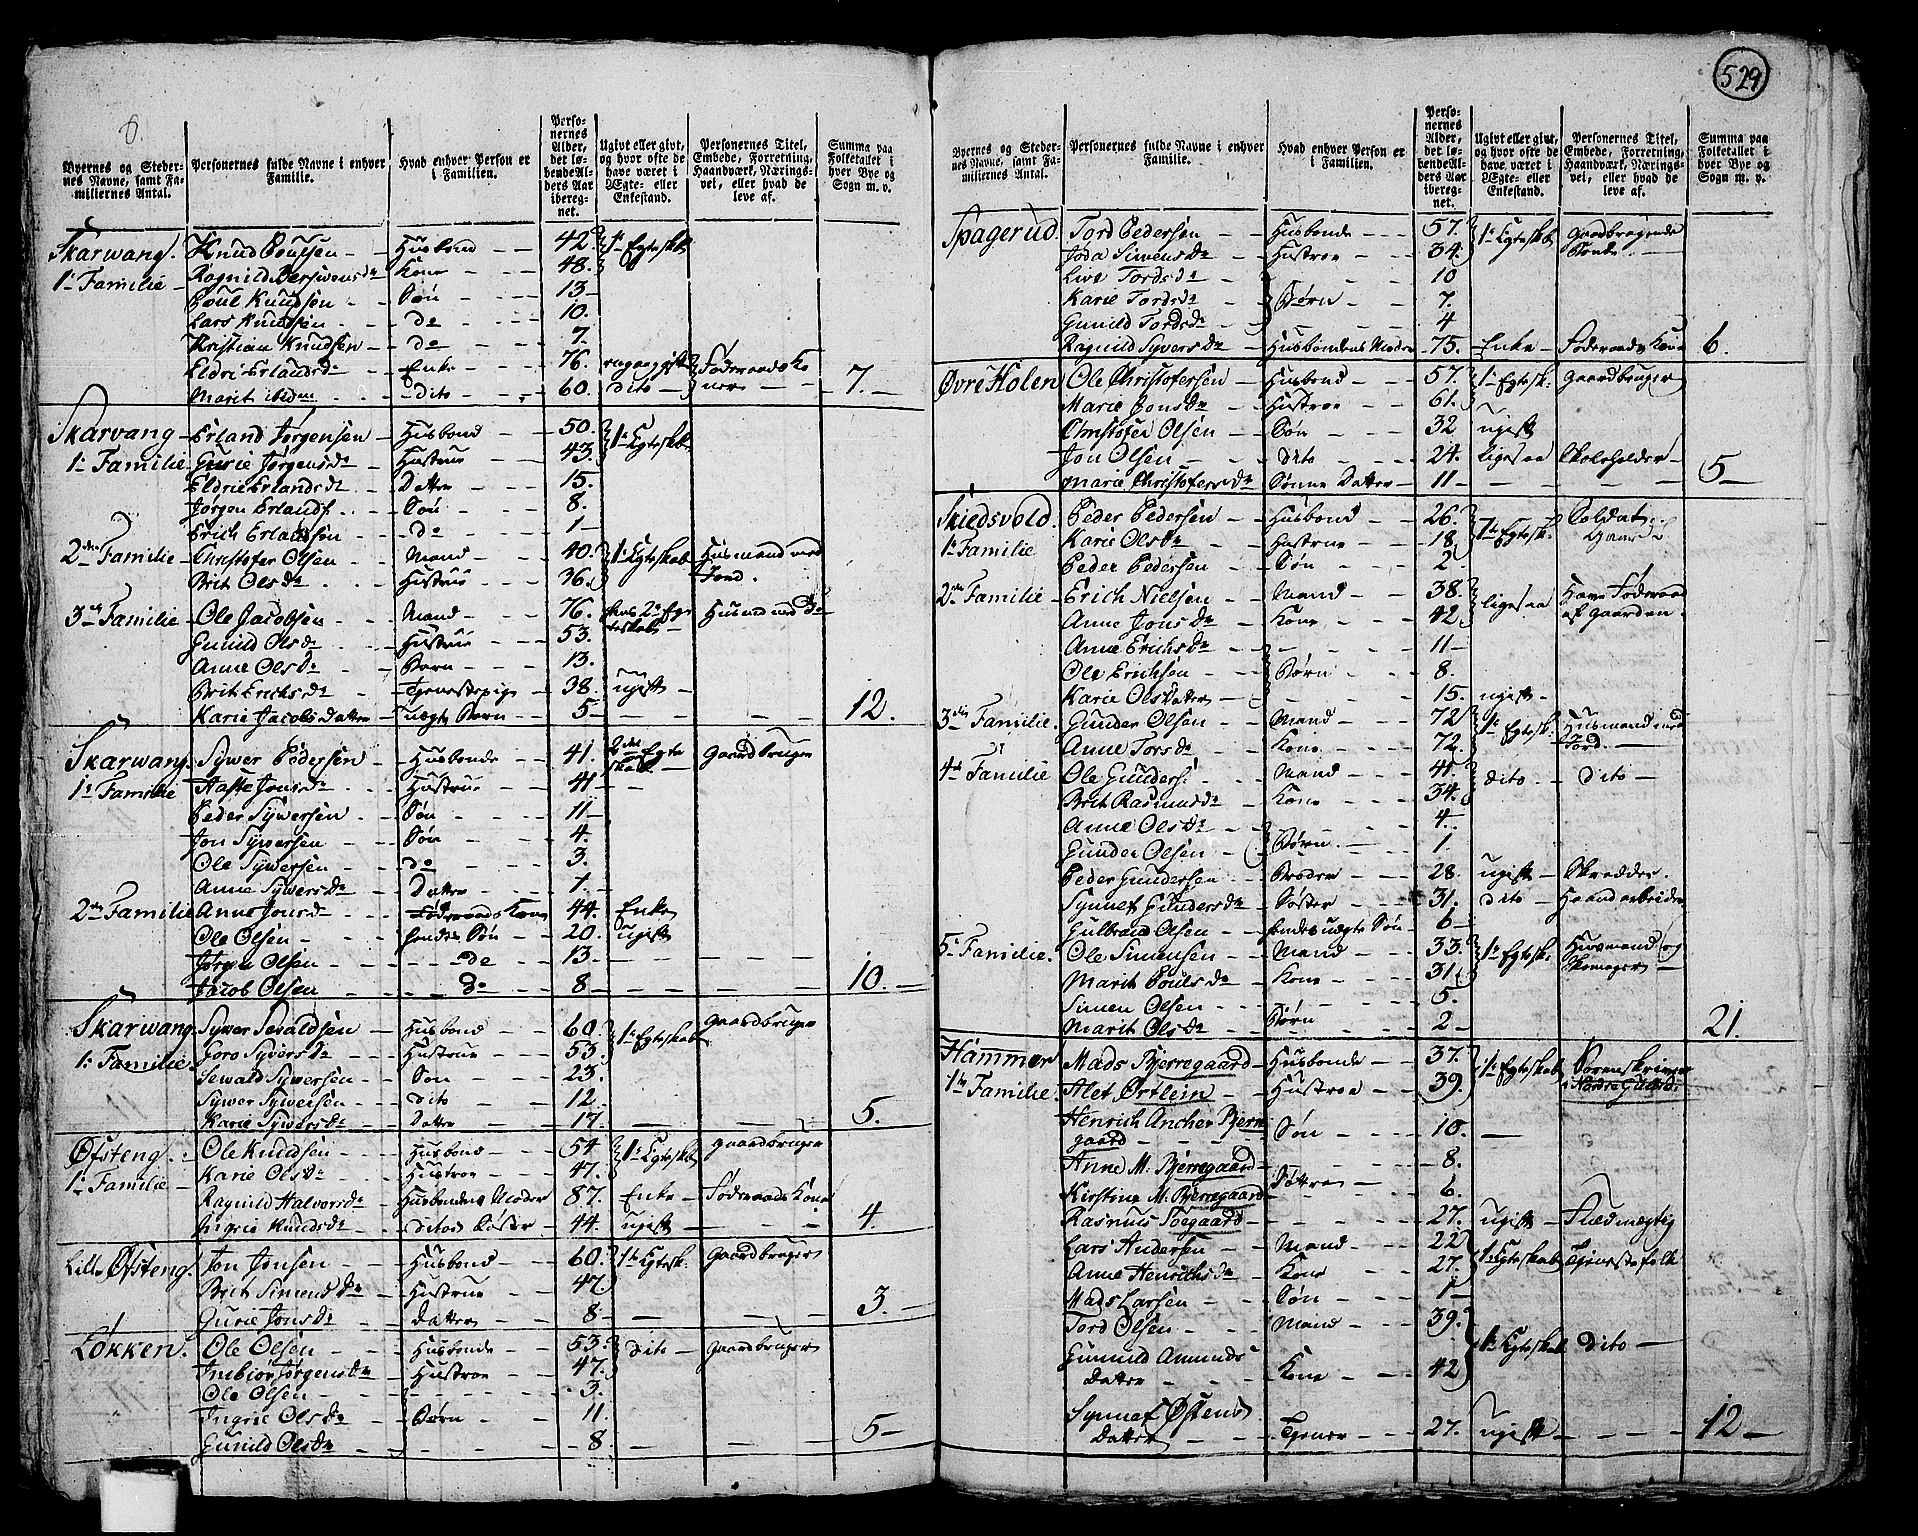 529
8.
Byernes og Stedernes Navne, samt Familliernes Antal.
Personernes fulde Navne i enhver Familie.
Hvad enhver Person er i Familien.
Personernes Alder, det løbende Alders Aar iberegnet.
Ugivt eller givt, og hvor ofte de have været i Ægte- eller Enkestand.
Personernes Titel, Embede, Forretning, Haandværk, Næringsvei, eller hvad de leve af.
Summa paa Folketallet i hver Bye og Sogn m. v.
Skarwang. Knud Poulsen Husbond 42 1te Egteskab
1te Familie Ragnild Kone 48
Poul Knudsen Søn 13
Lars Knudsen do 10
Kristian Knudsen do 7
Eldri Erlandsdr Enke 76 Føderaads Konere
Marit ibidem dito 60 dito 7.
Skarvang Erland Jørgensen Husbond 50 1te Egteskab
1te Familie Gurie Jørgensdr Hustrue 43
Eldrie Erlandsdr Datter 15
Jørgen Erlands. Søn 8
Erich Erlandsen do 1
2den Familie Christofer Olsen Mand 40 1te Egteskab Husmand med Jord.
Brit Olsdr Hustrue 36
3die Familie Ole Jacobsen Mand 76 2det Egteskab Husmd med do
Gunild Olsdr Hustrue 53
Anne Olsdr Barn 13
Brit Erichsdr Tjenestepige 38 ugift
Karie Jacobs Datter uægte Barn 5 12.
Skarwang Sywer Pedersen Husbonde 41 2det Egteskab Gaardbruger
1te Familie Jonsdr Hustrue 41
Peder Sywersen Søn 11
Jon Sywersen Søn 4
Ole Sywersen do 3
Anne Sywersdr Datter 1
2den Familie Anne Jonsdr Føderaads Kone 44 Enke
Ole Olsen hendes Søn 20 ugift
Jørgen Olsen do 13
Jacob Olsen do 8 10.
Skarwang Sywer Sevaldsen Husbond 60 1te Egteskab Gaardbruger
1te Familie Goro Syversdr Hustrue 53
Sewald Sywersen Søn 23
Sywer Sywersen dito 12
Karie Sywersdr Datter 17 5.
Øfsteng. Ole Knudsen Husbond 54 1te Egteskab Gaardbruger
1te Familie Karie Olsdr Hustroe 47
Ragnild Halvorsdr Husbondens Moder 87 Enke Føderaads Kone
Ingrie Knudsdr ditos Søster 44 ugift 4.
Lille Øfsteng. Jon Jonsen Husbond 60 1te Egtesk. Gaardbruger
Brit Simensdr Hustrue 47
Gurie Jonsdr Datter 8 3.
Løkken. Ole Olsen Husbonde 53 dito Gaardbruger
Jørgensdr Hustroe 47
Ole Olsen 3
Ingrie Olsdr Børn 11
Gunild Olsdr 8 5
Byernes og Stedernes Navne, samt Familiernes Antal.
Personernes fulde Navne i enhver Familie.
Hvad enhver Person er i Familien.
Personernes Alder, det løbende Alders Aar iberegnet.
Ugivt eller givt, og hvor ofte de have været i Ægte- eller Enkestand.
Personernes Titel, Embede, Forretning, Haandværk, Næringsvei, eller hvad de leve af.
Summa paa Folketallet i hver Bye og Sogn m. v.
Spagerud Tord Pedersen Husbonde 57 1te Egteskab Gaardbrugende Bonde
Joda Simensdr Hustroe 34
Live Tordsdr 10
Karie Tordsdr Børn 7
Gunild Tordsdr 4
Ragnild Syversdr Husbondens Moder 75 Enke Føderaads Kone 6.
Øvre Holen Ole Christofersen Husbond 57 1te Egtesk. Gaardbruger
Marie Jonsdr Hustroe 61
Christofer Olsen Søn 32 ugift
Jon Olsen dito 24 ligesaa Skoleholder
Marie Christofersdr Sønne Datter 11 5
Skiedsvold. Peder Pedersen Husbond 26 1te Egtesk. Soldat
1te Familie Karie Olsdr Hustrue 18
Peder Pedersen Søn 2
2den Familie Erich Nielsen Mand 38 ligesaa Have Føderaad af Gaarden
Anne Jonsdr Kone 42
Anne Erichsdr 11
Ole Erichsen Børn 8
Karie Olsdatter 15 ugift
3die Familie Gunder Olsen Mand 72 1te Egtesk. Husmand med Jord.
Anne Torsdr Kone 72
4de Familie Ole Gunders. Mand 41 dito dito
Brit Rasmusdr Kone 34
Anne Olsdr 4
Gunder Olsen Børn 1
Peder Gundersen Broder 28 ugift Skredder
Synnef Gundersdr Søster 31 dito Haandarbeider
Gulbrand Olsen hendes uægte Søn 6
5te Familie Ole Simensen Mand 33 1te Egtesk. Husmand og Skomager
Marit Poulsdr Kone 31
Simen Olsen 5
Marit Olsdr Børn 2 21.
Hammer Mads Bjerregaard Husbonde 37 1te Egteskab Sorenskriver
1te Familie Alet Ørtlein Hustroe 39 i Nordre Gulbrd:
Henrich Ancher Bjerregaard Søn 10
Anne M. Bjerregaard 8
Kirstine M. Bjerregaard Døttre 6
Rasmus Soegaard 27 ugift Fuldmægtig
Lars Andersen Mand 22 1te Egteskab Tjenestefolk
Anne Henrichsdr Kone 27
Mads Larsen Søn 1
Tord Olsen Mand 39 1te Egteskab dito
Gunnild Amunds Datter Kone 42
Synnef Østens Datter Tjener 27 ugift 12